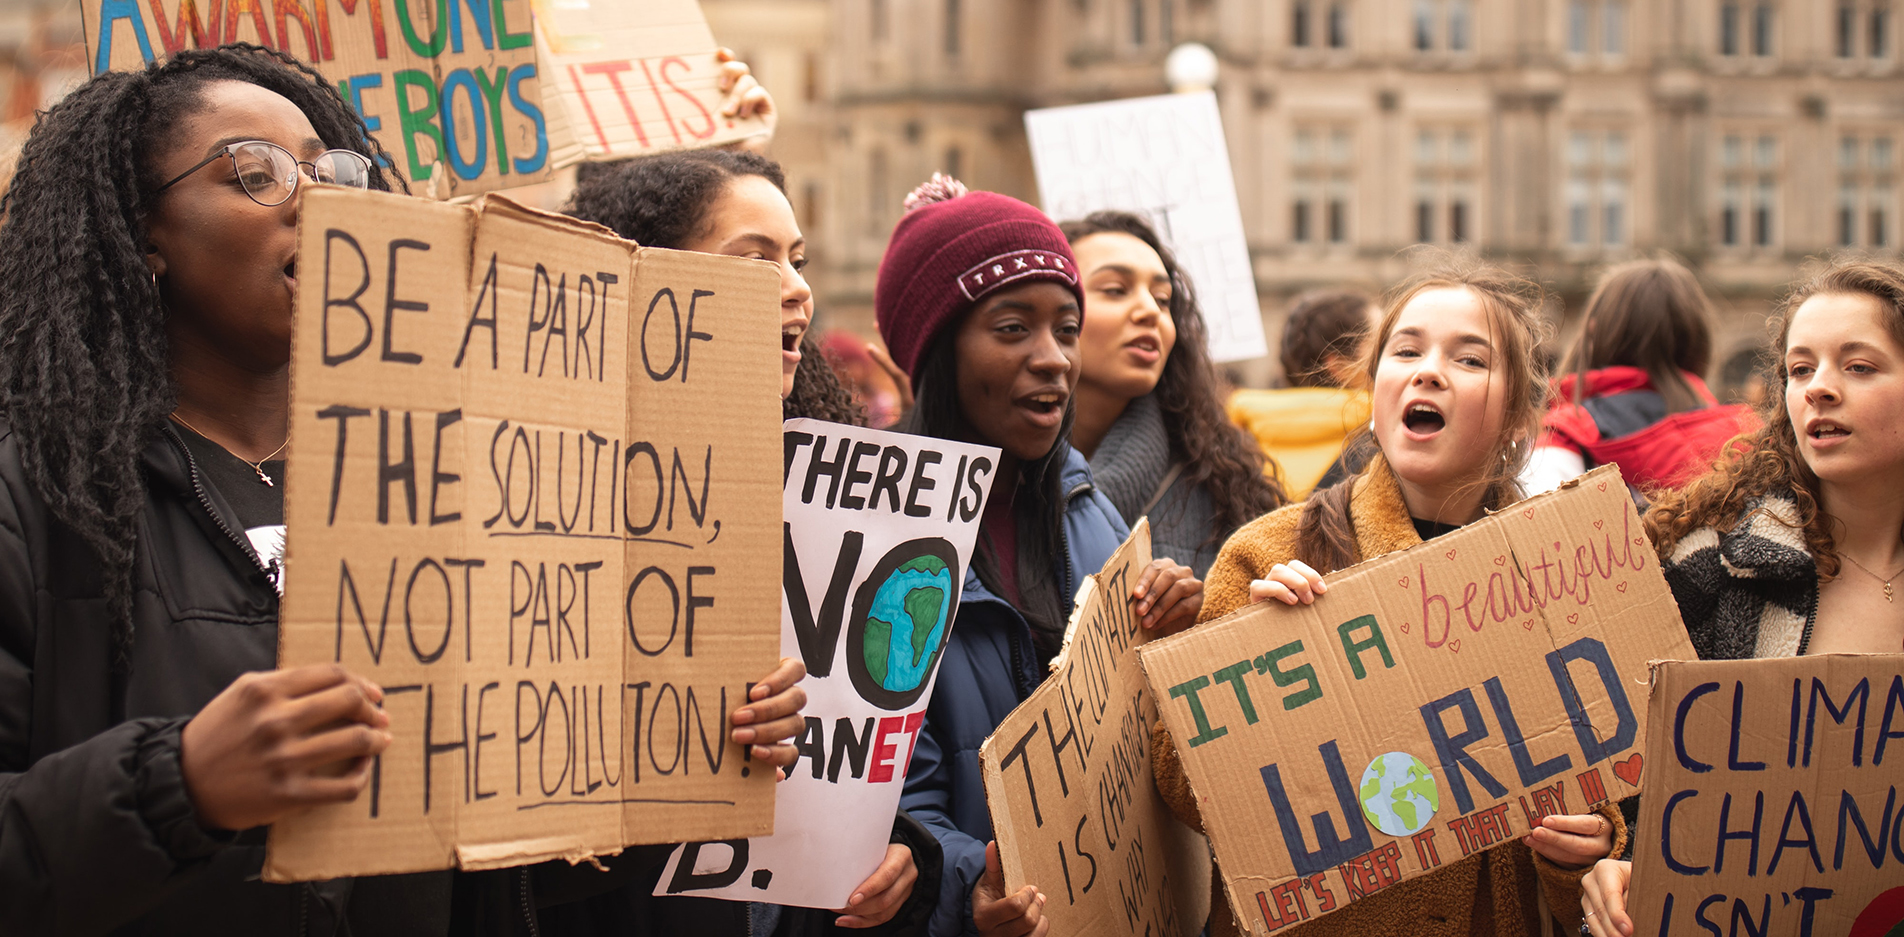 A WARM ONE
BOYS
IT IS
HUMAN
TRXYE
BE A PART OF
THE SOLUTION,
NOT PART OF
THE POLLUTON!
THERE IS
NO
ANET
B.
THE CLIMATE
IS CHANGING
WHY
IT'S A beautiful
WORLD
LET'S KEEP IT THAT WAY !!!
CLIMA
CHANG
ISN'T